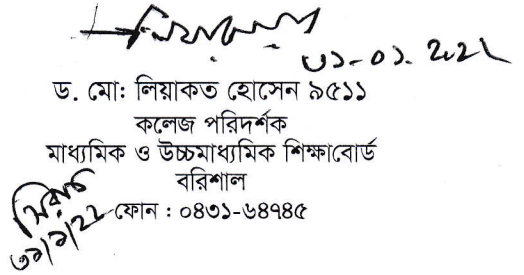 ৩১-০১.২০২২
ড. মো: লিয়াকত হোসেন ৯৫১১
কলেজ পরিদর্শক
মাধ্যমিক ও উচ্চমাধ্যমিক শিক্ষাবোর্ড
বরিশাল
৩১/১/২২
ফোন : ০৪৩১-৬৪৭৪৫